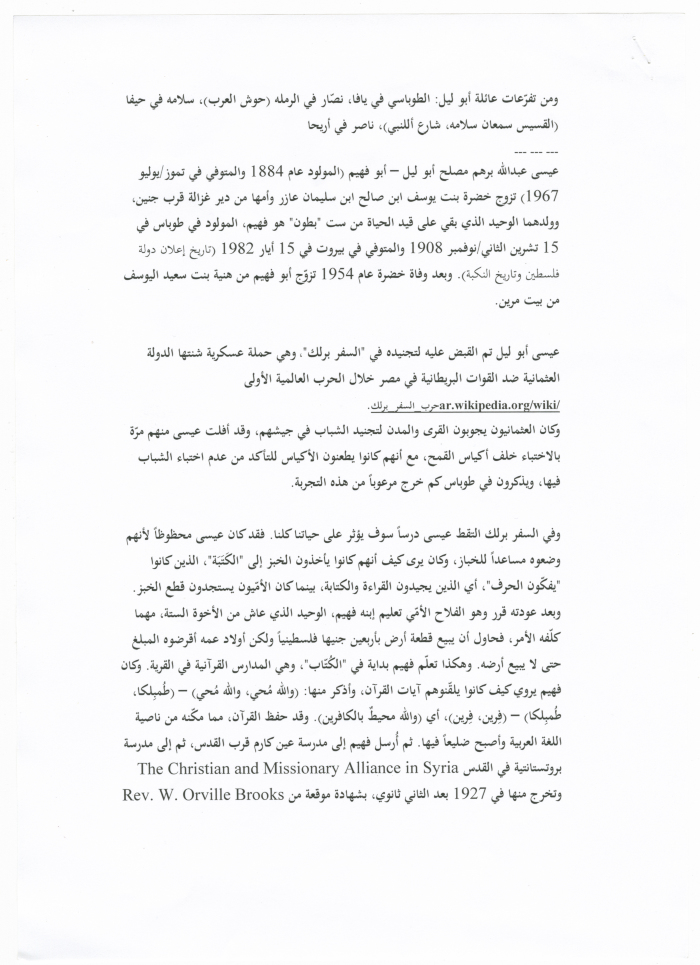 ومن تفرّعات عائلة أبو ليل: الطوباسي في يافا، نصّار في الرمله (حوش العرب)، سلامه في حيفا
(القسيس سمعان سلامه، شارع أللنبي)، ناصر في أريحا
--- --- ---
عيسى عبدالله برهم مصلح أبو ليل – أبو فهيم (المولود عام 1884 والمتوفي في تموز/يوليو
1967) تزوج خضرة بنت يوسف ابن صالح ابن سليمان عازر وأمها من دير غزالة قرب جنين،
وولدهما الوحيد الذي بقي على قيد الحياة من ست "بطون" هو فهيم، المولود في طوباس في
15 تشرين الثاني/نوفمبر 1908 والمتوفي في بيروت في 15 أيار 1982 (تاريخ إعلان دولة
فلسطين وتاريخ النكبة). وبعد وفاة خضرة عام 1954 تزوّج أبو فهيم من هنية بنت سعيد اليوسف
من بيت مرين.
عيسى أبو ليل تم القبض عليه لتجنيده في "السفر برلك"، وهي حملة عسكرية شنتها الدولة
العثمانية ضد القوات البريطانية في مصر خلال الحرب العالمية الأولى
ar.wikipedia.org/wiki/حرب_السفر_برلك.
وكان العثمانيون يجوبون القرى والمدن لتجنيد الشباب في جيشهم، وقد أفلت عيسى منهم مرّة
بالاختباء خلف أكياس القمح، مع أنهم كانوا يطعنون الأكياس للتأكد من عدم اختباء الشباب
فيها، ويذكرون في طوباس كم خرج مرعوباً من هذه التجربة.
وفي السفر برلك التقط عيسى درساً سوف يؤثر على حياتنا كلنا. فقد كان عيسى محظوظاً لأنهم
وضعوه مساعداً للخباز، وكان يرى كيف أنهم كانوا يأخذون الخبز إلى "الكَتَبَة"، الذين كانوا
"يفكّون الحرف"، أي الذين يجيدون القراءة والكتابة، بينما كان الأمّيون يستجدون قطع الخبز.
وبعد عودته قرر وهو الفلاح الأمّي تعليم إبنه فهيم، الوحيد الذي عاش من الأخوة الستة، مهما
كلّفه الأمر، فحاول أن يبيع قطعة أرض بأربعين جنيها فلسطينياً ولكن أولاد عمه أقرضوه المبلغ
حتى لا يبيع أرضه. وهكذا تعلّم فهيم بداية في "الكُتّاب"، وهي المدارس القرآنية في القرية. وكان
فهيم يروي كيف كانوا يلقّنوهم آيات القرآن، وأذكر منها: (والله مُحي، والله مُحي) – (طُمبِلكا،
طُمبِلكا) – (فِرين، فِرين)، أي (والله محيطٌ بالكافرين). وقد حفظ القرآن، مما مكّنه من ناصية
اللغة العربية وأصبح ضليعاً فيها. ثم أُرسل فهيم إلى مدرسة عين كارم قرب القدس، ثم إلى مدرسة
بروتستانتية في القدس The Christian and Missionary Alliance in Syria
وتخرج منها في 1927 بعد الثاني ثانوي، بشهادة موقعة من Rev. W. Orville Brooks